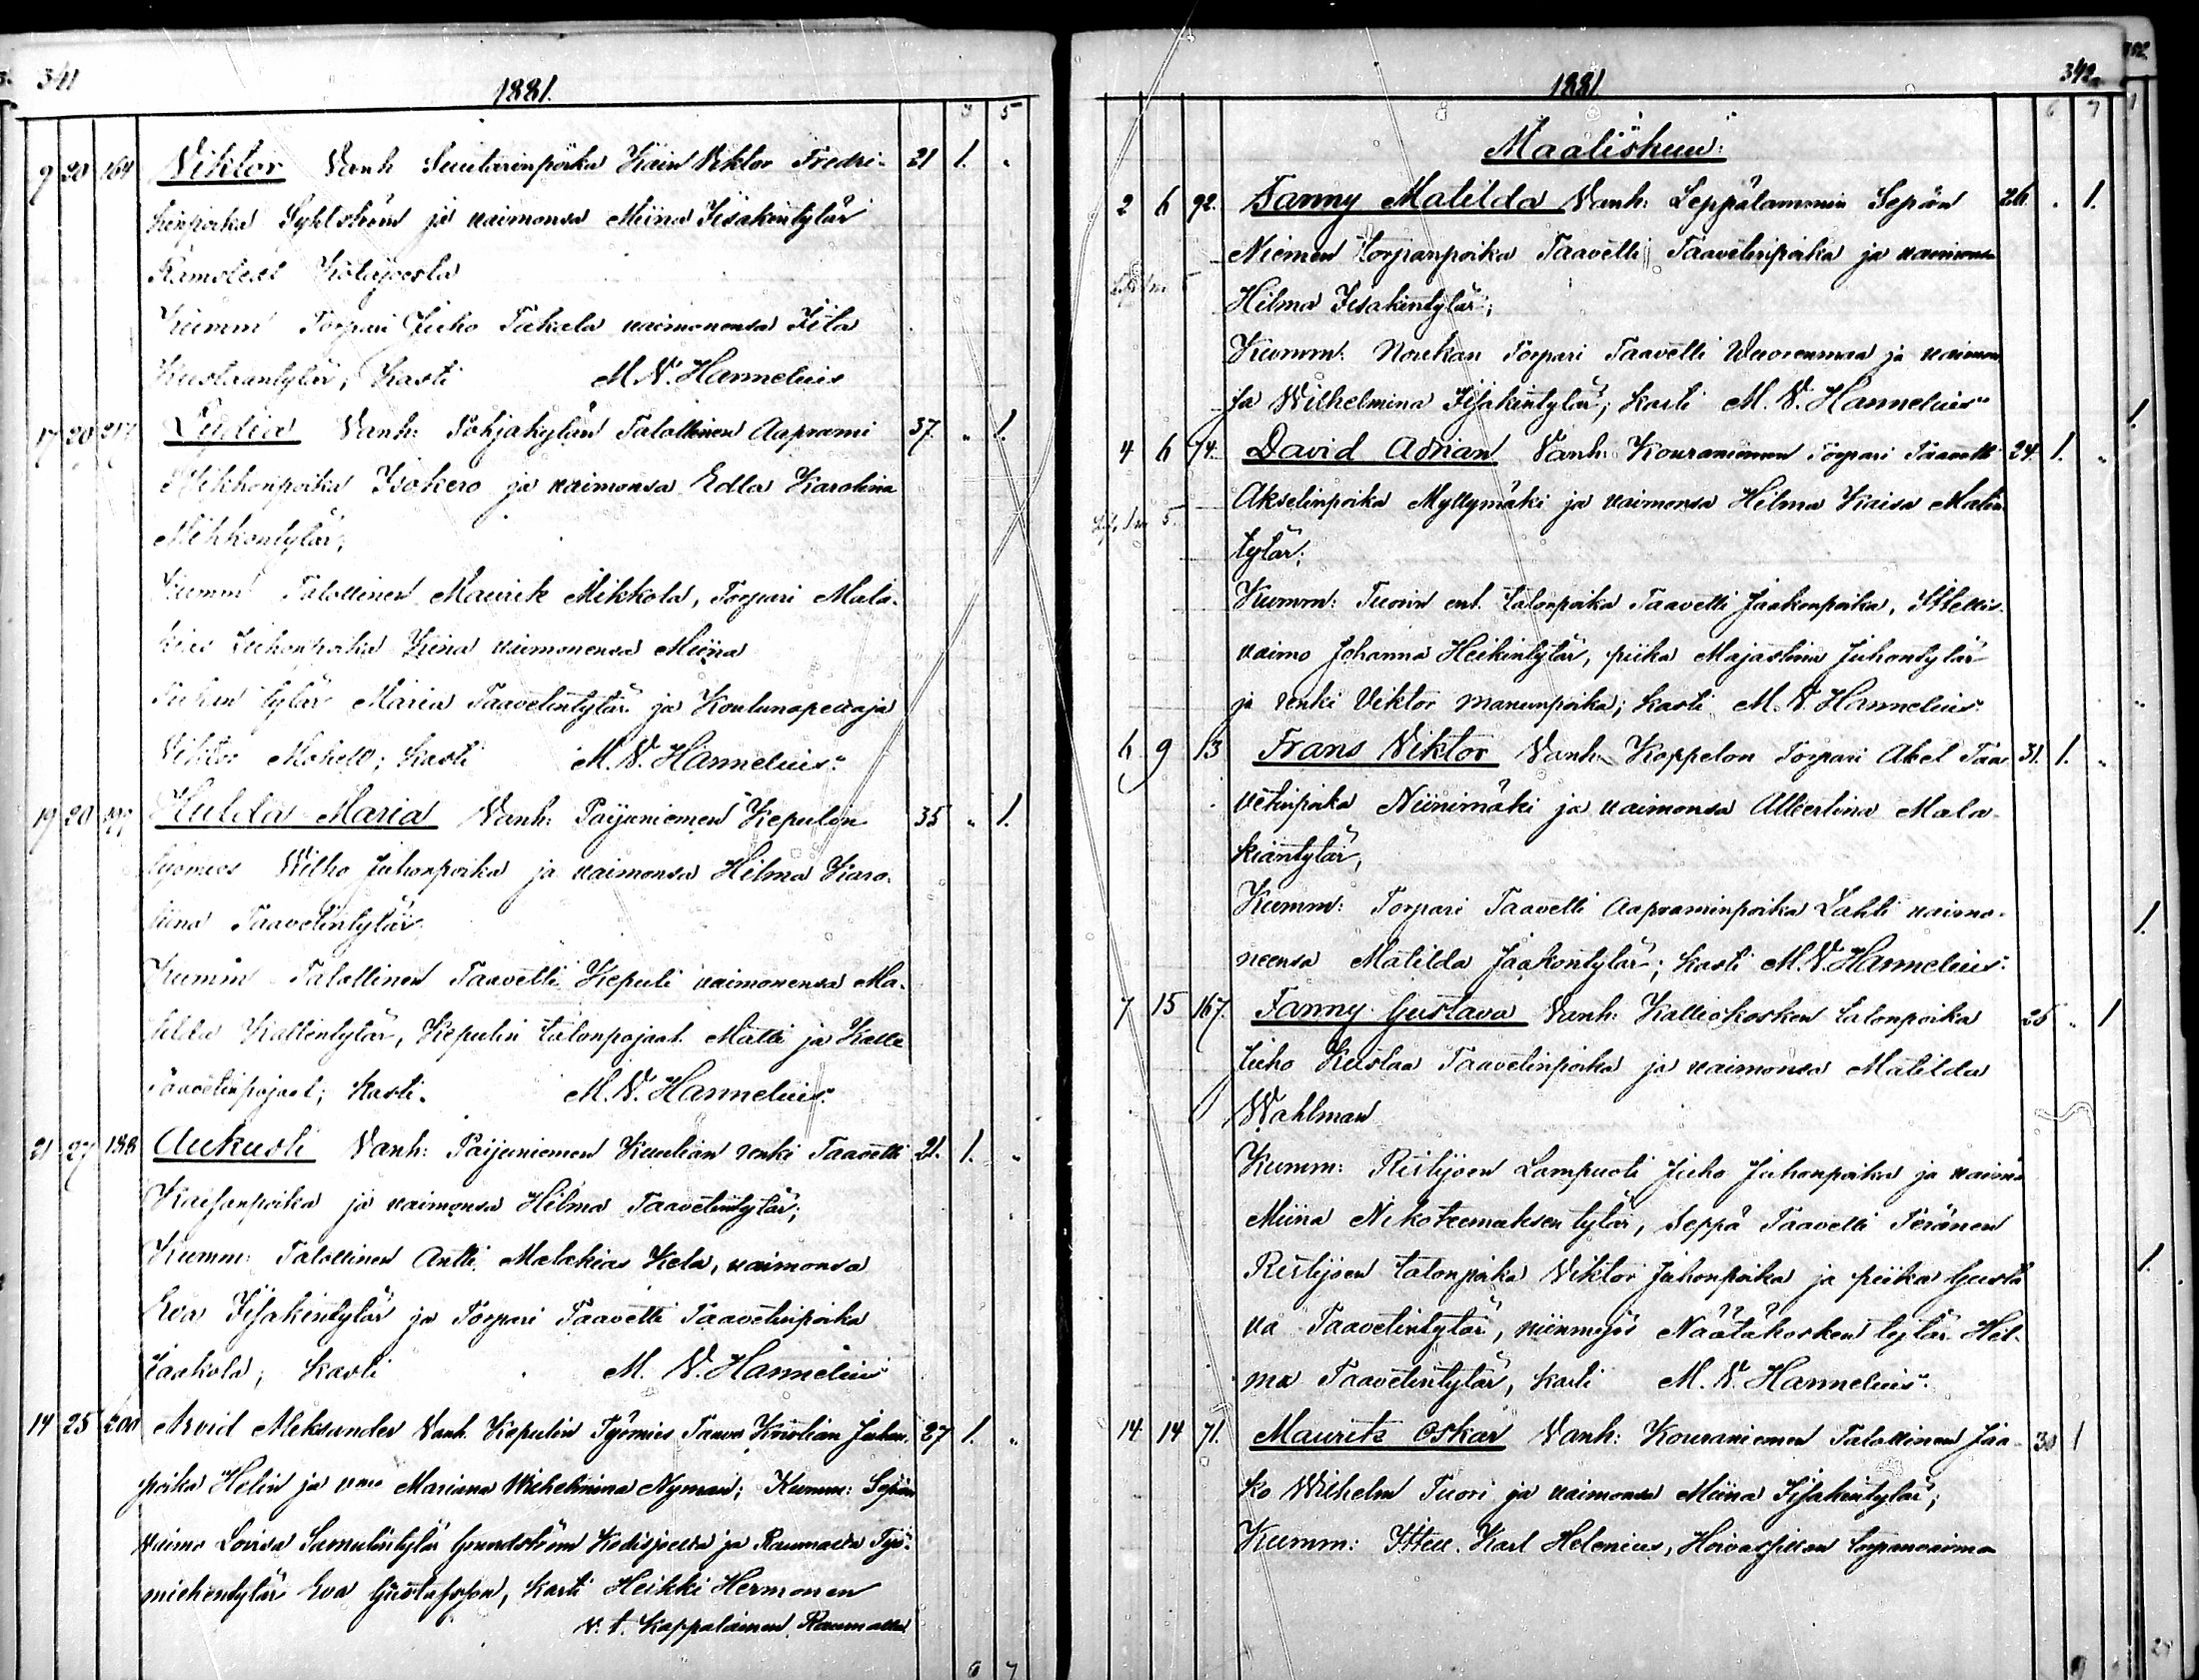 341
1881.
3 5
9 20 164 Viktor Vanh Suutarinpoika Kain Viktor Fredri- 21 1. "
kinpoika ja vaimonsa Miina Iisakintytär
Kumm Torpari Juho Takala vaimonensa Iita
Kustaantytär; Kasti M. V. Hannelius
17 20 217 Lydia Vanh: Pohjakylän Talollinen Aaprami 37. " 1.
Mikkonpoika Isokero ja vaimonsa Edla Karolina
Mikkontytär;
Kumm Talollinen Maurits Mikkola, Torpari Mala-
kias Juhonpoika Kiina vaimonensa Miina
Juhontytär Maria Taavetintytär ja Koulunopettaja
Viktor Mokell; Kasti M. V. Hannelius.
19 20 Hulda Maria Vanh: Paijuniemen Kepulin 35 " 1.
työmies Wilho Juhonpoika ja vaimonsa Hilma Karo-
liina Taavetintytär
Kumm Talollinen Taavetti Kepuli vaimonensa Ma-
tilda Kallentytär, Kepulin talonpojaat Matti ja Kalle
Taavetinpojaat; Kasti. M. V. Hannelius.
21 27 188 Aukusti Vanh: Paijuniemen Kuulian renki Taavetti 21. 1. "
Kaisanpoika ja vaimonsa Hilma Taavetintytär;
Kumm: Talollinen Antti Malakias Kela, vaimonsa
Eva Iisakintytär ja Torpari Taavetti Taavetinpoika
Jaakola; Kasti M. V. Hannelius
14 25 200 Arvid Aleksander Vanh. Kepulin Työmies Taava Kristian Juhon- 27 1. "
poika Helin ja vmo Mariana Wilhelmina Nyman; Kumm: Sepän
vaimo Lovisa Samulintytär Grundström Kodisjoelta ja Raumalta Työ-
miehentytär Eva Gustafsson, Kasti Heikki Hermonen
v. t. Kappalainen Raumalla
6 7
1881
342
6 7
Maaliskuu:
2 6 92. Fanny Matilda Vanh: Leppälammin Sepän 26. . 1.
Niemen torpanpoika Taavetti Taavetinpoika ja vaimonsa
Hilma Iisakintytär;
Kumm: Noukan Torpari Taavetti Wuorenmaa ja vaimon
sa Wilhelmina Iisakintytär; Kasti M. V. Hannelius
4 6 74. David Adrian Vanh: Kouraniemen Torpari Taavetti 24. 1. "
Akselinpoika Myllymäki ja vaimonsa Hilma Kaisa Matin
tytär;
Kumm: Tuorin ent. talonpoika Taavetti Jaakonpoika, Ittellis-
vaimo Johanna Heikintytär, piika Majastina Juhontytär
ja renki Viktor Manuunpoika; Kasti M. V. Hannelius.
6 9 13 Frans Viktor Vanh: Koppelon Torpari Abel Taa- 31. 1. "
vetinpoika Niinimäki ja vaimonsa Albertina Mala-
kiantytär;
Kumm: Torpari Taavetti Aapraminpoika Lahti vaimo-
neensa Matilda Jaakontytär; Kasti M. V. Hannelius.
7 15 167. Fanny Gustava Vanh: Kalliokosken talonpoika 25 " 1
Juho Kustaa Taavetinpoika ja vaimonsa Matilda
Wahlman
Kumm: Ristijoen Lampuoti Juho Juhonpoika ja vaimo
Miina Nikoteemuksen tytär, Seppä Taavetti Teränen
Ristijoen talonpoika Viktor Juhonpoika ja piika Gusta
va Taavetintytär, niinmyös Näätäkosken tytär Hil-
ma Taavetintytär, Kasti M. V. Hannelius.
14 14 71. Maurits Oskar Vanh: Kouraniemen Talollinen Jaa- 30 1
ko Wilhelm Tuori ja vaimonsa Miina Iisakintytär;
Kumm: Ittell. Karl Helenius, torpanvaimo